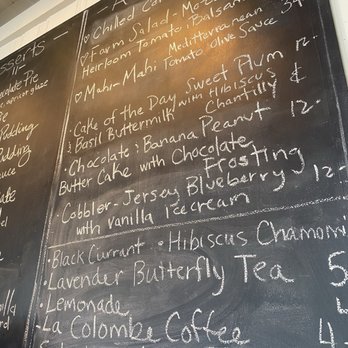 esserts
Chilled
♡ Farm Salad - Mo
Heirloom Tomato Balsam
♡ Mahi-Mahi Mediterranean
Tomato Olive Sauce
• Cake of the Day Sweet Plum
& Basil Buttermilk with Hibiscus Chantilly 12-
• Chocolate & Banana Peanut
Butter Cake with Chocolate Frosting 12-
• Cobbler - Jersey Blueberry
with Vanilla Icecream 12-
• Black Currant • Hibiscus Chamomi
• Lavender Butterfly Tea 5
• Lemonade
La Colombe Coffee 4
Pie
Pudding
Pudding